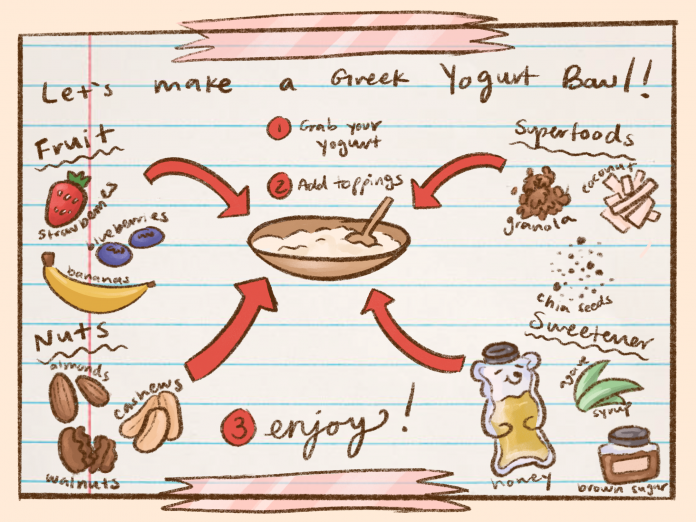 Let's make a Greek Yogurt Bowl!!
1 Grab your
yogurt
2 Add toppings
Fruit
strawberries
blueberries
bananas
Nuts
almonds
cashews
walnuts
Superfoods
granola
coconut
chia seeds
Sweetener
agave
syrup
honey
brown sugar
3 enjoy!